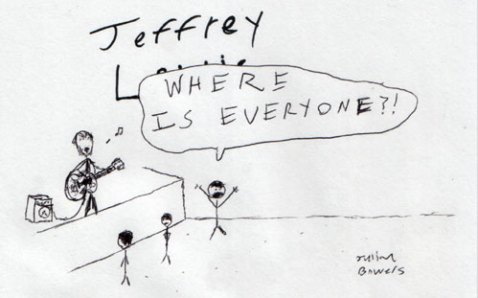 Jeffrey
WHERE
IS EVERYONE?!
Bowers